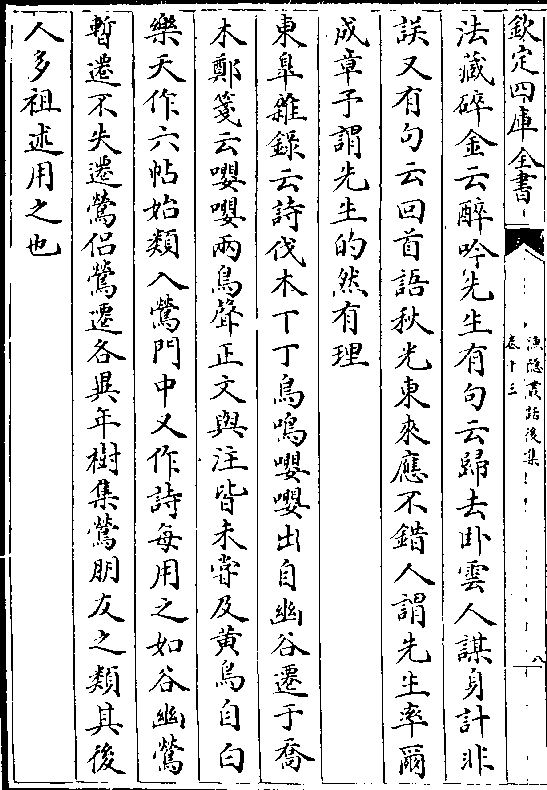 欽定四庫全書
漁隱叢話後集
卷十三
八
法藏碎金云醉吟先生有句云歸去卧雲人謀身計非
誤又有句云回首語秋光東來應不錯人謂先生率爾
成章予謂先生的然有理
東臯雜錄云詩伐木丁丁鳥鳴嚶嚶出自幽谷遷于喬
木鄭箋云嚶嚶兩鳥聲正文與注皆未嘗及黄鳥自白
樂天作六帖始類入鶯門中又作詩每用之如谷幽鶯
暫遷不失遷鶯侣鶯遷各異年樹集鶯朋友之類其後
人多祖述用之也